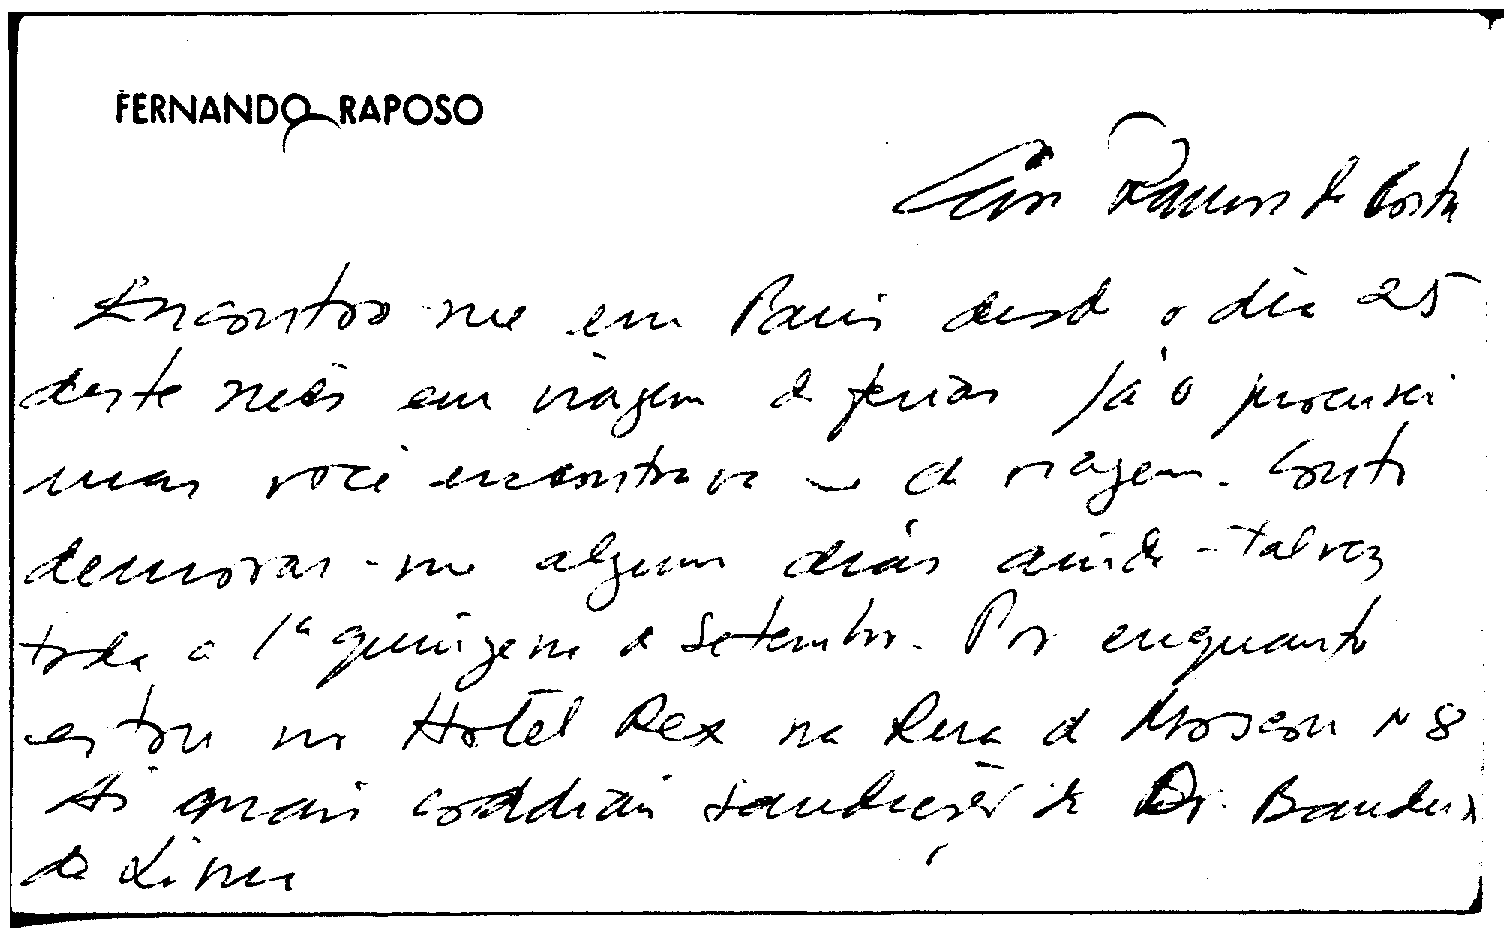 FERNANDO RAPOSO
Caro Ramos da Costa
Encontro-me em Paris desde o dia 25
deste mês em viagem de ferias Já o procurei
mas você encontrava-se de viagem. Conto
demorar-me alguns dias ainda - talvez
toda a 1ª quinzena de Setembro. Por enquanto
estou no Hotel Rex na Rua de Moscou N 8
As mais cordiais saudações do Dr. Bandeira
de Lima